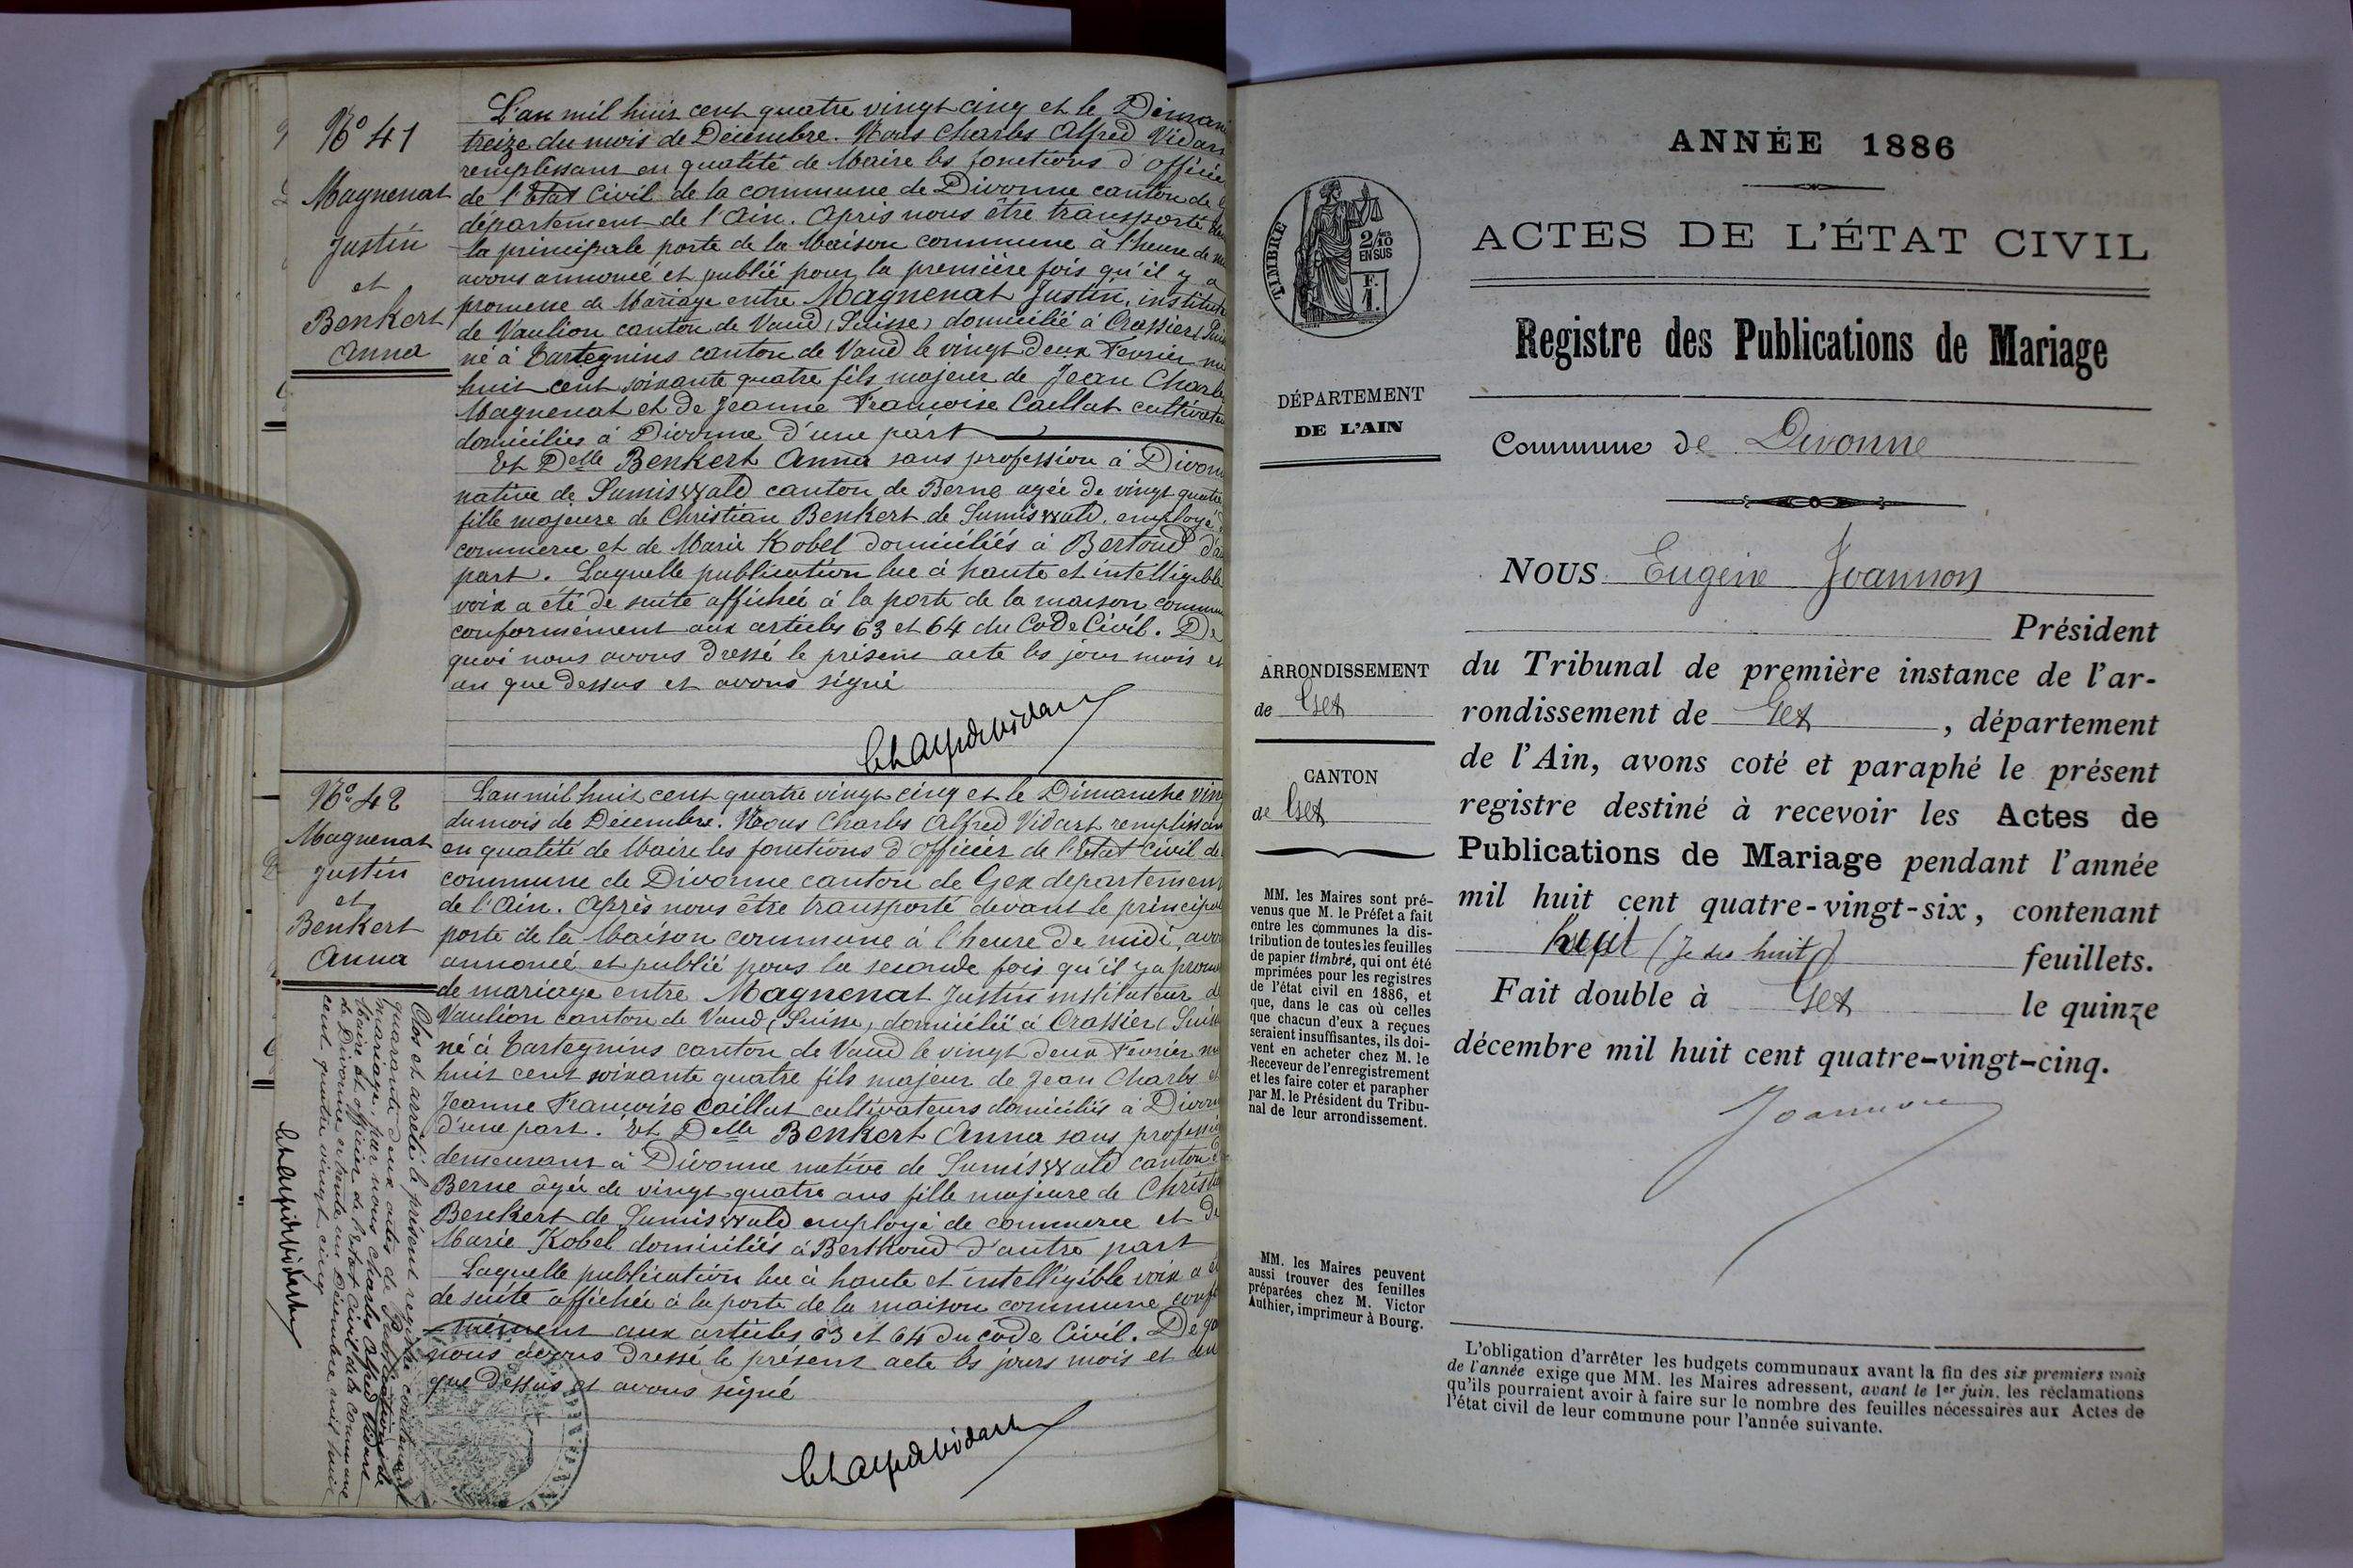 N° 41
Magnenat
Justin
et
Benkert
Anna
L'an mil huit cent quatre vingt cinq et le Diman
treize du mois de Décembre. Nous Charles Alfred Vidar
remplissant en qualité de Maire les fonctions d'Officier
de l'Etat Civil de la commune de Divonne canton de G
département de l'Ain. Après nous être transporté dev
la principale porte de la Maison commune à l'heure de mi
avons annoncé et publié pour la première fois qu'il y a
promesse de Mariage entre Magnenat Justin, institut
de Vaulion canton de Vaud (Suisse) domicilié à Crassier (Suis
né à Tartegnins canton de Vaud le vingt deux Fevrier mi
huit cent soixante quatre fils majeur de Jean Charles
Magnenat et de Jeanne Françoise Caillat cultivate
domiciliés à Divonne d'une part
Et Delle Benkert Anna sans profession à Divonn
native de Sumiswald canton de Berne agée de vingt quatre
fille majeure de Christian Benkert de Sumiswald, employé d
commerce et de Marie Kobel domiciliés à Bertoud d'au
part. Laquelle publication lue à haute et intelligible
voix a été de suite affichée à la porte de la maison commun
conformément aux articles 63 et 64 du Code Civil. De
quoi nous avons dressé le présent acte les jour mois et
an que dessus et avons signé
Ch Alfred Vidart
N° 42
Magnenat
Justin
et
Benkert
Anna
L'an mil huit cent quatre vingt cinq et le Dimanche vin
du mois de Décembre. Nous Charles Alfred Vidart remplissan
en qualité de Maire les fonctions d'Officier de l'Etat Civil de
commune de Divonne canton de Gex departement
de l'Ain. Après nous être transporté devant le principal
porte de la Maison commune à l'heure de midi, avo
annoncé et publié pour la seconde fois qu'il y a prome
de mariage entre Magnenat Justin instituteur de
Vaulion canton de Vaud (Suisse) domicilié à Crassier (Suiss
né à Tartegnins canton de Vaud le vingt deux Fevrier mi
huit cent soixante quatre fils majeur de Jean Charles et
Jeanne Françoise Caillat cultivateurs domiciliés à Divonn
d'une part. Et Delle Benkert Anna sans professi
demeurant à Divonne native de Sumiswald canton d
Berne agée de vingt quatre ans fille majeure de Christi
Benkert de Sumiswald employé de commerce et de
Marie Kobel domiciliés à Berthoud d'autre part
Laquelle publication lue à haute et intelligible voix a é
de suite affichée à la porte de la maison commune confo
mément aux articles 63 et 64 du code Civil. De qu
nous avons dressé le présent acte les jours mois et an
que dessus et avons signé
Ch Alfred Vidart
Clos et arrêté le présent registre contenant
quarante deux actes de Publications de
mariage, par nous Charles Alfred Vidart
Maire et officier de l'Etat Civil de la Commune
de Divonne ce trente un Décembre mil huit
cent quatre vingt cinq
Ch Alfred Vidart
TIMBRE
2/10
EN SUS
F.
1.
DÉPARTEMENT
DE L'AIN
ARRONDISSEMENT
de Gex
CANTON
de Gex
MM. les Maires sont pré-
venus que M. le Préfet a fait
entre les communes la dis-
tribution de toutes les feuilles
de papier timbré, qui ont été
imprimées pour les registres
de l'état civil en 1886, et
que, dans le cas où celles
que chacun d'eux a reçues
seraient insuffisantes, ils doi-
vent en acheter chez M. le
Receveur de l'enregistrement
et les faire coter et parapher
par M. le Président du Tribu-
nal de leur arrondissement.
MM. les Maires peuvent
aussi trouver des feuilles
préparées chez M. Victor
Authier, imprimeur à Bourg.
ANNÉE 1886
ACTES DE L'ÉTAT CIVIL
Registre des Publications de Mariage
Commune de Divonne
NOUS Eugène Joannon
Président
du Tribunal de première instance de l'ar-
rondissement de Gex, département
de l'Ain, avons coté et paraphé le présent
registre destiné à recevoir les Actes de
Publications de Mariage pendant l'année
mil huit cent quatre-vingt-six, contenant
huit (Je dis huit) feuillets.
Fait double à Gex le quinze
décembre mil huit cent quatre-vingt-cinq.
Joannon
L'obligation d'arrêter les budgets communaux avant la fin des six premiers mois
de l'année exige que MM. les Maires adressent, avant le 1er juin, les réclamations
qu'ils pourraient avoir à faire sur le nombre des feuilles nécessaires aux Actes de
l'état civil de leur commune pour l'année suivante.